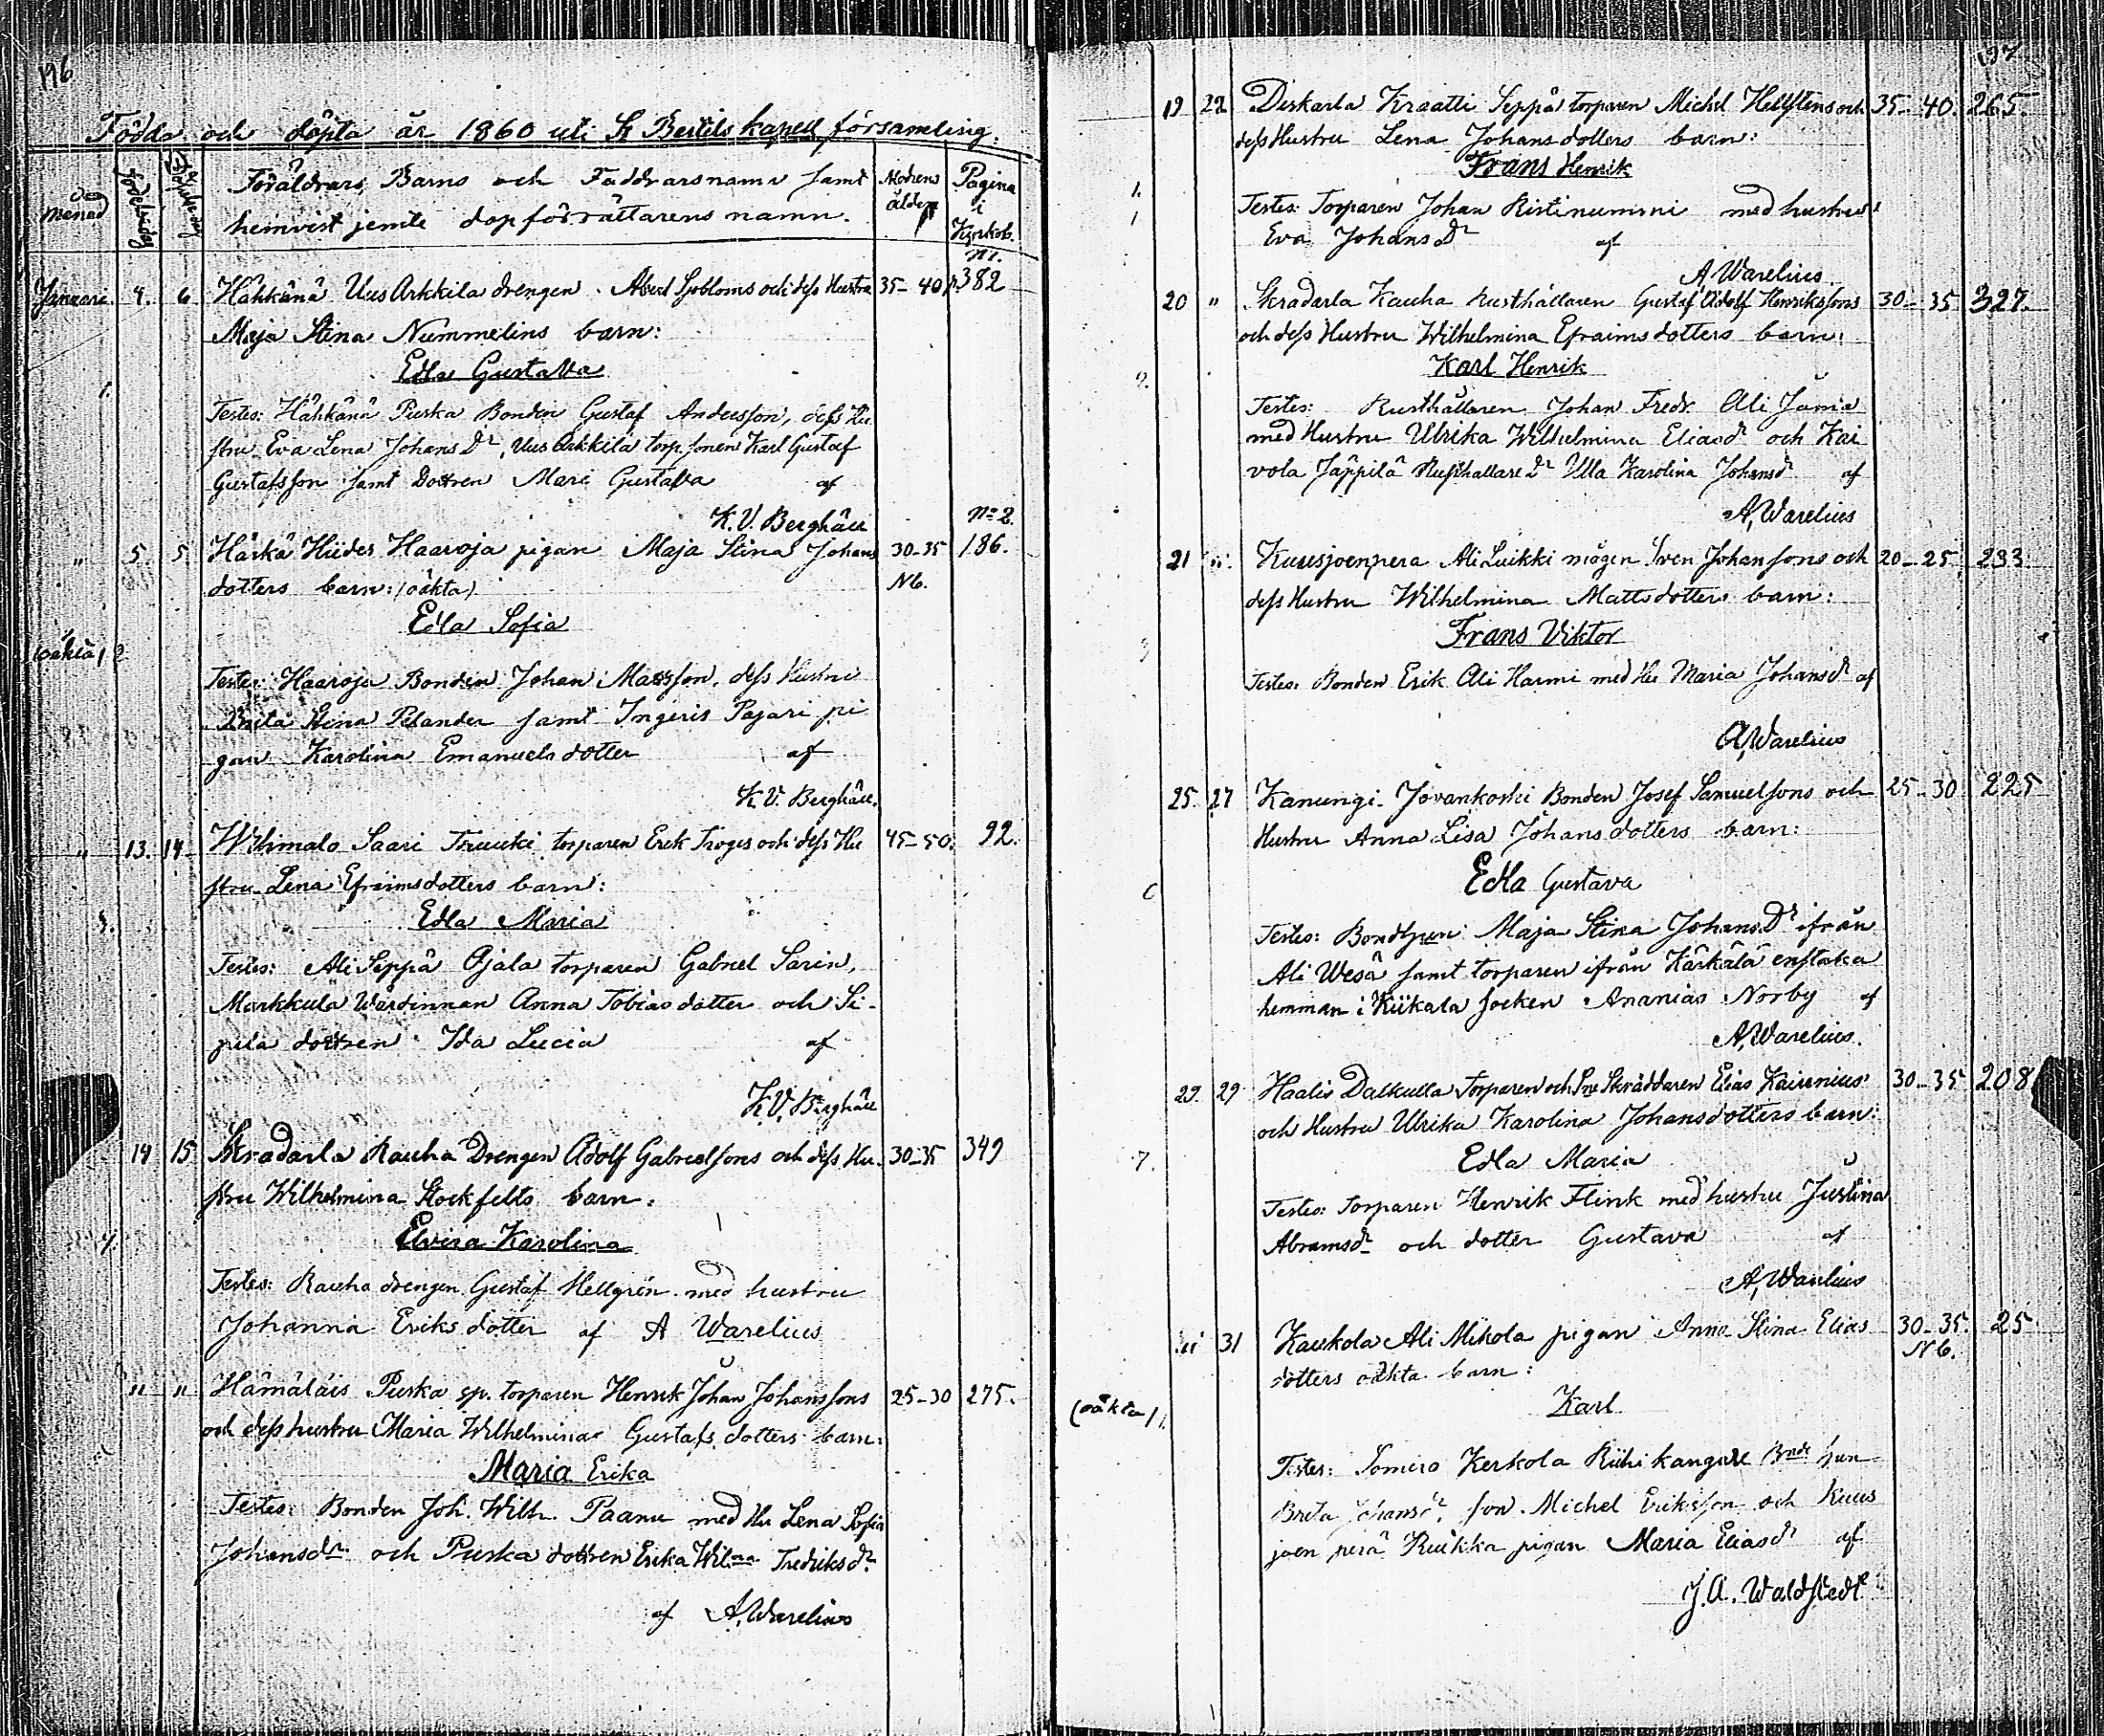 196
Födda och döpta år 1860 uti St Bertils kapell församling.
och månad
födelsedag
Föräldrars, Barns och Faddrars namn samt
hemvist jemte dopförrättarens namn.
Modrens ålder
Pagina i Kyrkob.
N1.
Januari. 4. 6 Hähkänä Uus Arkkila drengen Abel Sjobloms och dess Hustru 35-40 p.382
Maja Stina Nummelins barn:
Edla Gustava
1.
Testes: Hähkänä Puska Bonden Gustaf Andersson, dess Hu
stru Eva Lena Johans Dr, Uus Arkkila torp. sonen Karl Gustaf
Gustafsson samt Dottren Mari Gustava af
K. V. Berghäll
No 2.
" 5. 5. Härkä Hiides Haaroja pigan Maja Stina Johans 30-35 186.
dotters barn: (oäkta) Nb.
Edla Sofia
(oäkta) 2
Testes: Haaroja Bonden Johan Matsson, dess Hustru
Brita Stina Pelander samt Ingeris Pajari pi
gan Karolina Emanuels dotter af
K. V. Berghäll.
" 13. 14 Wihmalo Saari torparen Erik Troges och dess Hu 45-50. 92.
stru Lena Efraimsdotters barn:
Edla Maria
3.
Testes: Ali Seppä Ojala torparen Gabriel Sarin,
Markkula Wärdinnan Anna Tobias dotter och Si-
pilä dottren Ida Lucia af
K. V. Berghäll
14 15 Skradarla Rauha Drengen Adolf Gabrielsons och dess Hu. 30-35 349
stru Wilhelmina Stockfelts barn:
Elvira Karolina
4.
Testes: Rauha drengen Gustaf Hellgrén med hustru
Johanna Eriks dotter af A Warelius
" " Hämäläis Puska sp. torparen Henrik Johan Johanssons 25-30 275.
och dess hustru Maria Wilhelmina Gustafs dotters barn:
Maria Erika
Testes: Bonden Joh. Wilh. Paanu med Hu Lena Sofia
Johansdr och Puska dottren Erika Wilna Fredriksdr
af A, Warelius
197
19 22 Diskarla Kraatti Seppä torparen Michel Hellstens och 35-40. 265.
dess Hustru Lena Johans dotters barn:
Frans Henrik
1.
1
Testes: Torparen Johan Ristinummi med hustru
Eva Johans Dr af
A, Warelius.
20 " Skradarla Kauha Rusthållaren Gustaf Adolf Henrikssons 30-35 327.
och dess Hustru Wilhelmina Efraimsdotters barn:
Karl Henrik
2.
Testes: Rusthållaren Johan Fredr. Ali Jämä
med Hustru Ulrika Wilhelmina Eliasdr och Kai
vola Jäppilä Rusthallare Dr Ulla Karolina Johansdr af
A, Warelius
21 " Kuusjoenpera Ali Luikki mågen Sven Johansons och 20-25 233
dess Hustru Wilhelmina Mattsdotters barn:
Frans Viktor
3
Testes: Bonden Erik Ali Harmi med Hu Maria Johansdr af
A, Warelius
25. 27 Kanungi Jovankoski Bonden Josef Samuelsons och 25-30 225
Hustru Anna Lisa Johans dotters barn:
Edla Gustava
6
Testes: Maja Stina Johans Dr ifrån
Ali Wesä samt torparen ifrån Kärkälä enstaka
hemman i Kiikala socken Ananias Norby af
A, Warelius.
29. 29 Haalis Dalkulla Torparen och Skräddaren Elias Kairenius 30-35 208
och Hustru Ulrika Karolina Johansdotters barn:
Edla Maria
7.
Testes: Torparen Henrik Flink med hustru Justina
Abramsdr och dotter Gustava af
A, Warelius
" 31 Kaukola Ali Mikola pigan Anna Stina Elias 30-35. 25
dotters oäkta barn: Nb.
Karl
(oäkta) 1.
Testes: Somero Kerkola Riihikangare
Brita Johansdr, son Michel Eriksson och Kuus
joen perä Ruikka pigan Maria Eliasdr af
J. A. Waldstedt